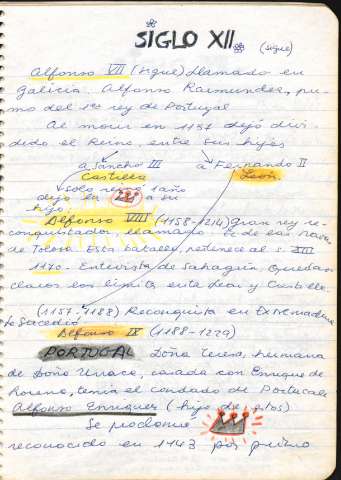 SIGLO XII (sigue)
Alfonso VII (sigue) llamado en
Galicia. Alfonso Raimundez, pri-
mo del 1er rey de Portugal
Al morir en 1157 dejó divi-
dido el Reino, entre sus hijos
a Sancho III a Fernando II
Castilla León
solo reinó 1 año
dejo la a su
hijo
Alfonso VIII (1158-1214) Gran rey re-
conquistador, llamado el de las Navas
de Tolosa. Esta batalla, pertenece al s. XIII
1170. Entrevista de Sahagún, quedan
claros los límites entre León y Castilla.
(1157-1188) Reconquista en Extremadura
le sucedió
Alfonso IX (1188-1229)
PORTUGAL Doña Teresa, hermana
de Doña Urraca, casada con Enrique de
Lorena, tenía el condado de Portucale
Alfonso Enriquez (hijo de estos)
Se proclama
reconocido en 1143 por primo